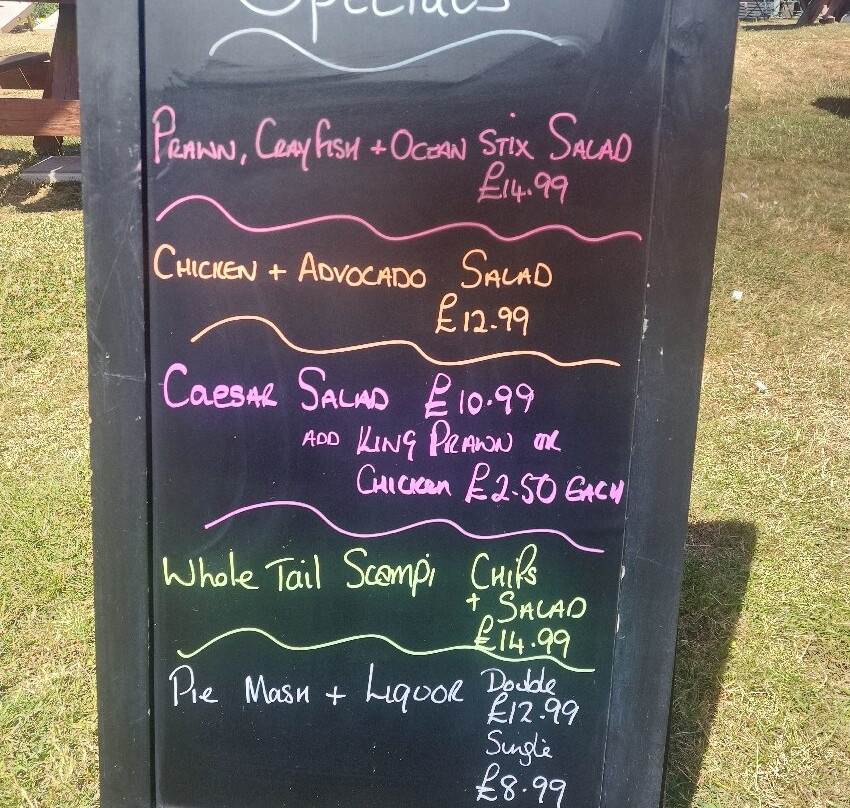 Specials
PRAWN, CRAYFISH + OCEAN STIX SALAD
£14.99
CHICKEN + ADVOCADO SALAD
£12.99
CAESAR SALAD £10.99
ADD KING PRAWN OR
CHICKEN £2.50 EACH
Whole Tail Scampi CHIPS
+ SALAD
£14.99
PIE MASH + LIQUOR Double
£12.99
Single
£8.99